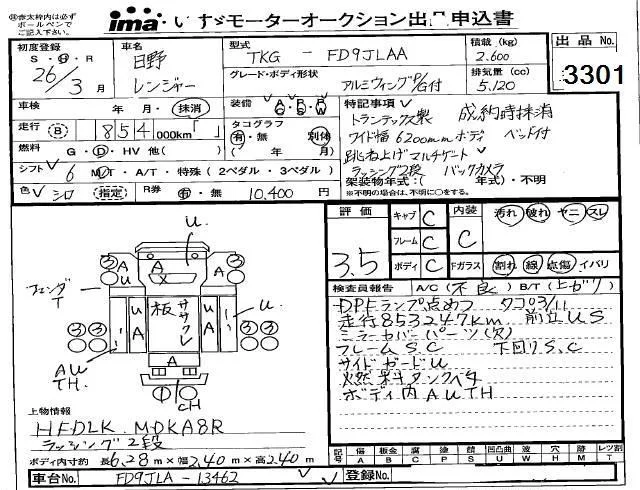 ⑧赤太枠内は必ず
ボールペンで
ご記入ください。
ima いすゞモーターオークション出品申込書
初度登録
S・Ⓗ・R
26/3月
車名
日野
レンジャー
型式
TKG - FD9JLAA
グレード・ボディ形状
アルミウィングP/G付
積載(kg)
2.600
排気量(cc)
5.120
出品No.
3301
車検 年 月・抹消
装備 A・P・P G・S・W
走行 B 854 000km「 」
タコグラフ
有・無 別体
( 年 月)
燃料 G・D・HV 他( )
シフト 6 M/T・A/T・特殊(2ペダル・3ペダル)
色 シロ 指定 R券 有・無 10,400円
特記事項 成約時抹消
トランテックス製
ワイド幅6200mmボディ ベッド付
跳ね上げマルチゲート
ラッシング2段 バックカメラ
架装物年式:( 年式)・不明
※不明の場合は、不明に○をする。
評価
3.5
キャブ C
フレーム C
ボディ C
内装
C
Fガラス
汚れ 破れ ヤニ スレ
割れ 線 点傷 イバリ
検査員報告 A/C(不良) B/T(上ガリ)
DPFランプ点めつ タコ03/11
走行853247km 前立US
ミラーカバーパーツ(欠)
フレームSC 下回りS.C
サイドガードU
燃料タンクベタ
ボディ内AUTH
U
フェンダー
T
A
X
板
ササクレ
U A
AU
TH.
U.
CH
上物情報
HFDLK MDKA8R
ラッシング2段
ボディ内寸約 長6.28m×幅2.40m×高2.40m
車台No. FD9JLA-13462
登録No.
記号
傷 板金 腐 塗 錆 凹凸曲 ゆがみ 穴 跡 レツ割
A B C P S U W H M T